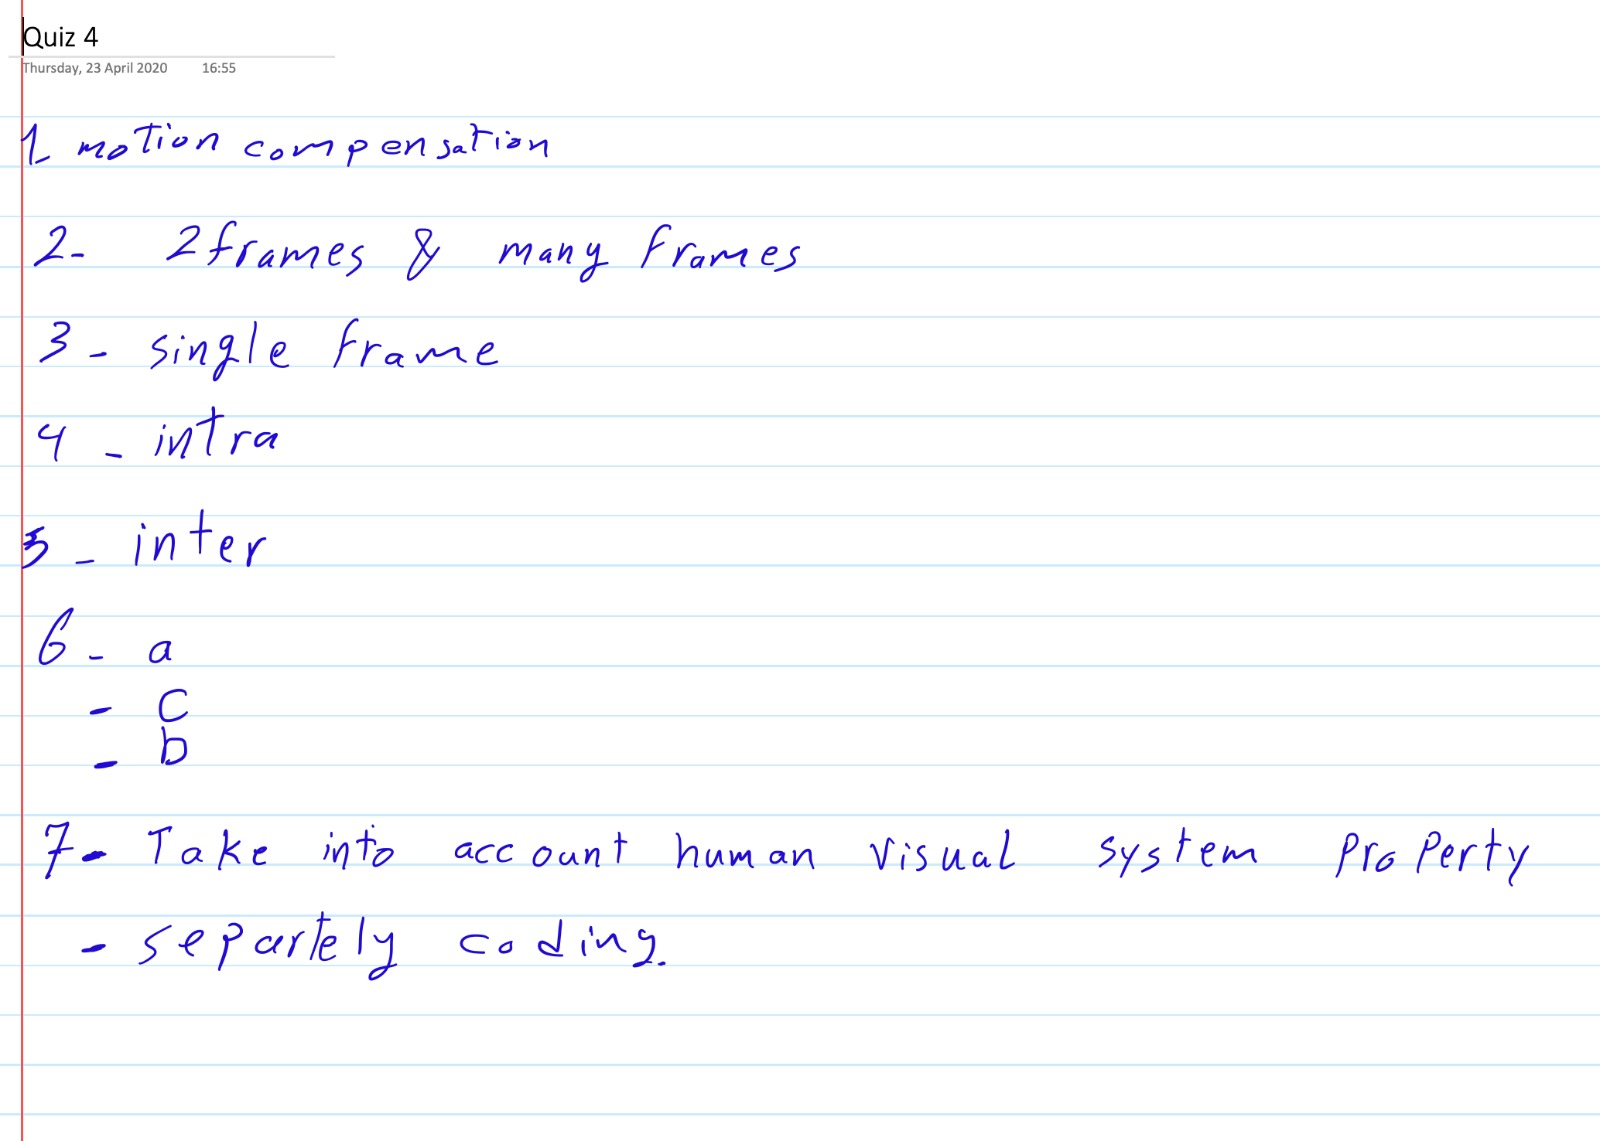 Quiz 4
Thursday, 23 April 2020 16:55
1- motion compensation
2- 2 frames & many frames
3- single frame
4- intra
5- inter
6- a
- c
- b
7- Take into account human visual system property
- separtely coding.